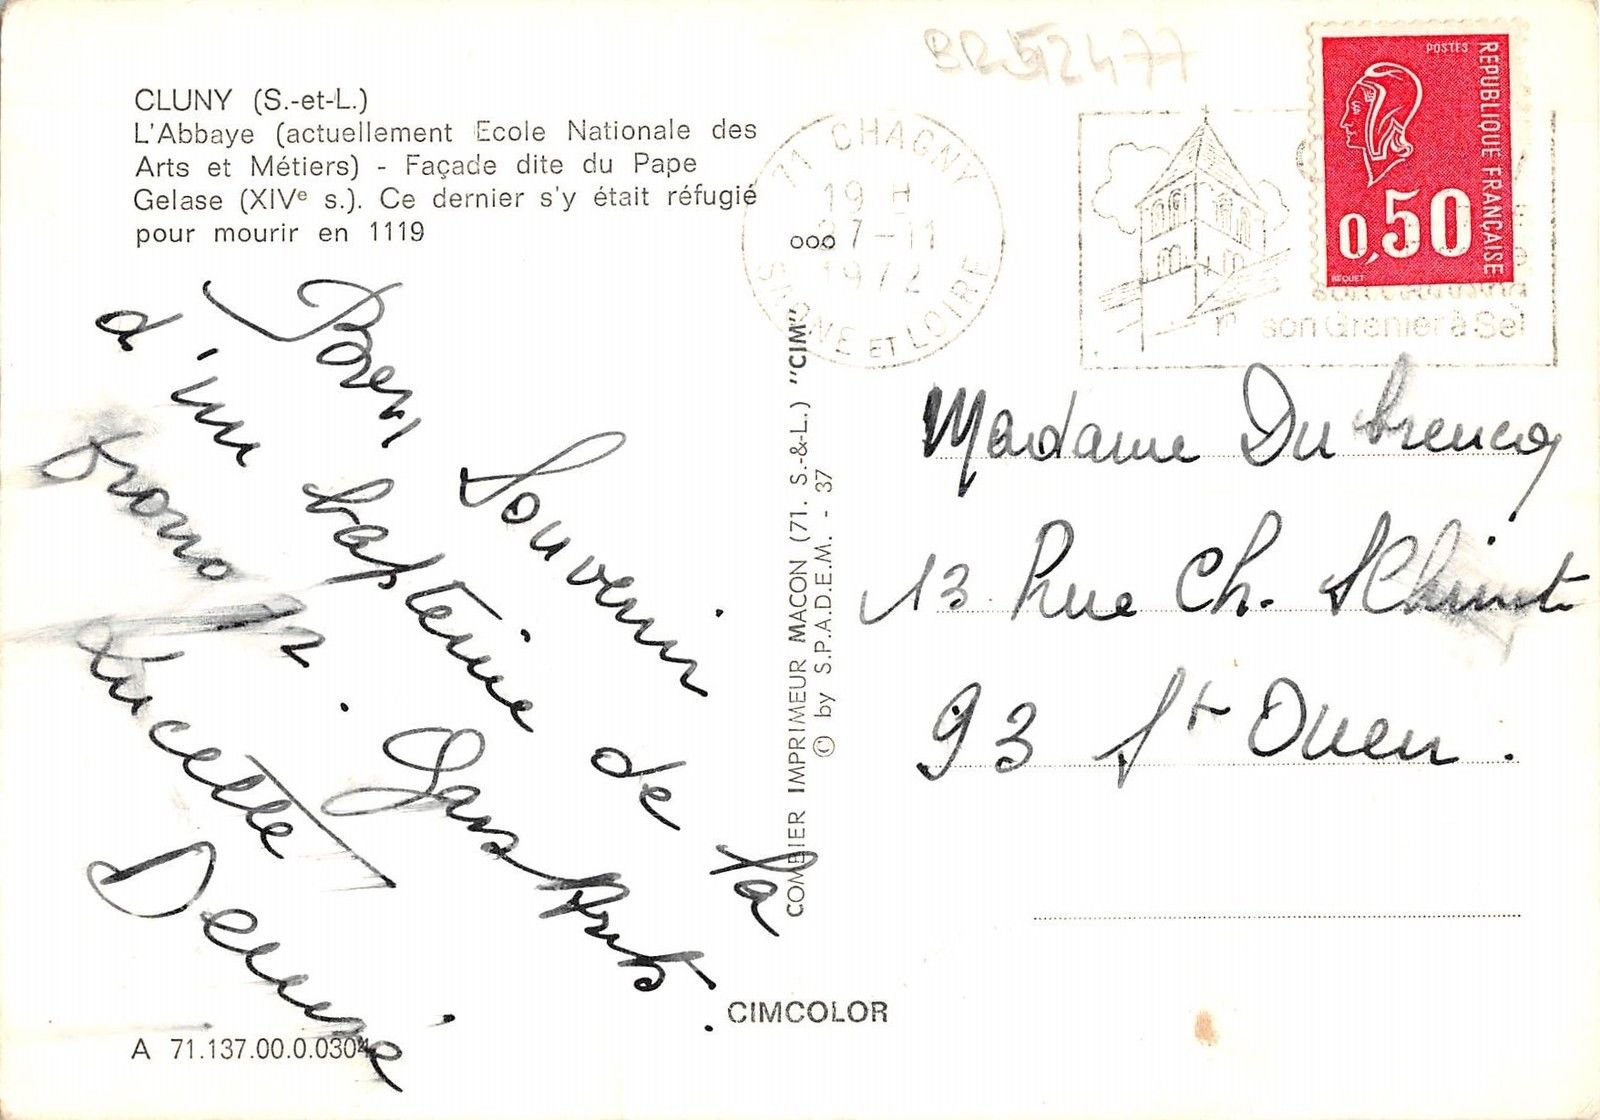 BR512477
CLUNY (S.-et-L.)
L'Abbaye (actuellement Ecole Nationale des
Arts et Métiers) - Façade dite du Pape
Gelase (XIVe s.). Ce dernier s'y était réfugié
pour mourir en 1119
71 CHAGNY
19 H
27-11
1972
SAONE ET LOIRE
ooo
son Grenier à Sel
POSTES
REPUBLIQUE FRANÇAISE
0,50
BEQUET
Bon Souvenir de la
d'un baptême
Lucette
Denise
COMBIER IMPRIMEUR MACON (71. S.-&-L.) "CIM"
© by S.P.A.D.E.M. - 37
Madame Dubreucq
13 Rue Ch. Schmidt
93 St Ouen.
CIMCOLOR
A 71.137.00.0.0304